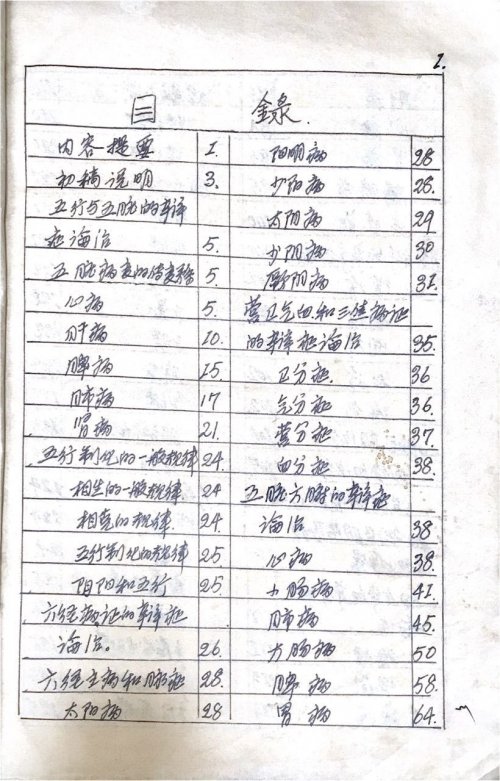 1.
目 錄.
内容提要 1.
初稿说明 3.
五行与五脏的辩证
论治 5.
五脏病变的传变 5
心病 5.
肝病 10.
脾病 15
肺病 17
肾病 21.
五行制化的一般规律 24.
相生的一般规律 24
相克的规律 24.
五行制化的规律 25
阴阳和五行 25
六经病证的辩证
论治。 26
六经主病和脉证 28.
太阳病 28
阳明病 28
少阳病 28.
太阴病 29
少阴病 30
厥阴病 31.
营卫气血和三焦病证
的辩证论治 35.
卫分证 36
气分证 36.
营分证 37.
血分证 38.
五脏六腑的辩证
论治 38.
心病 38.
小肠病 41.
肺病 45.
大肠病 50
脾病 58.
胃病 64.